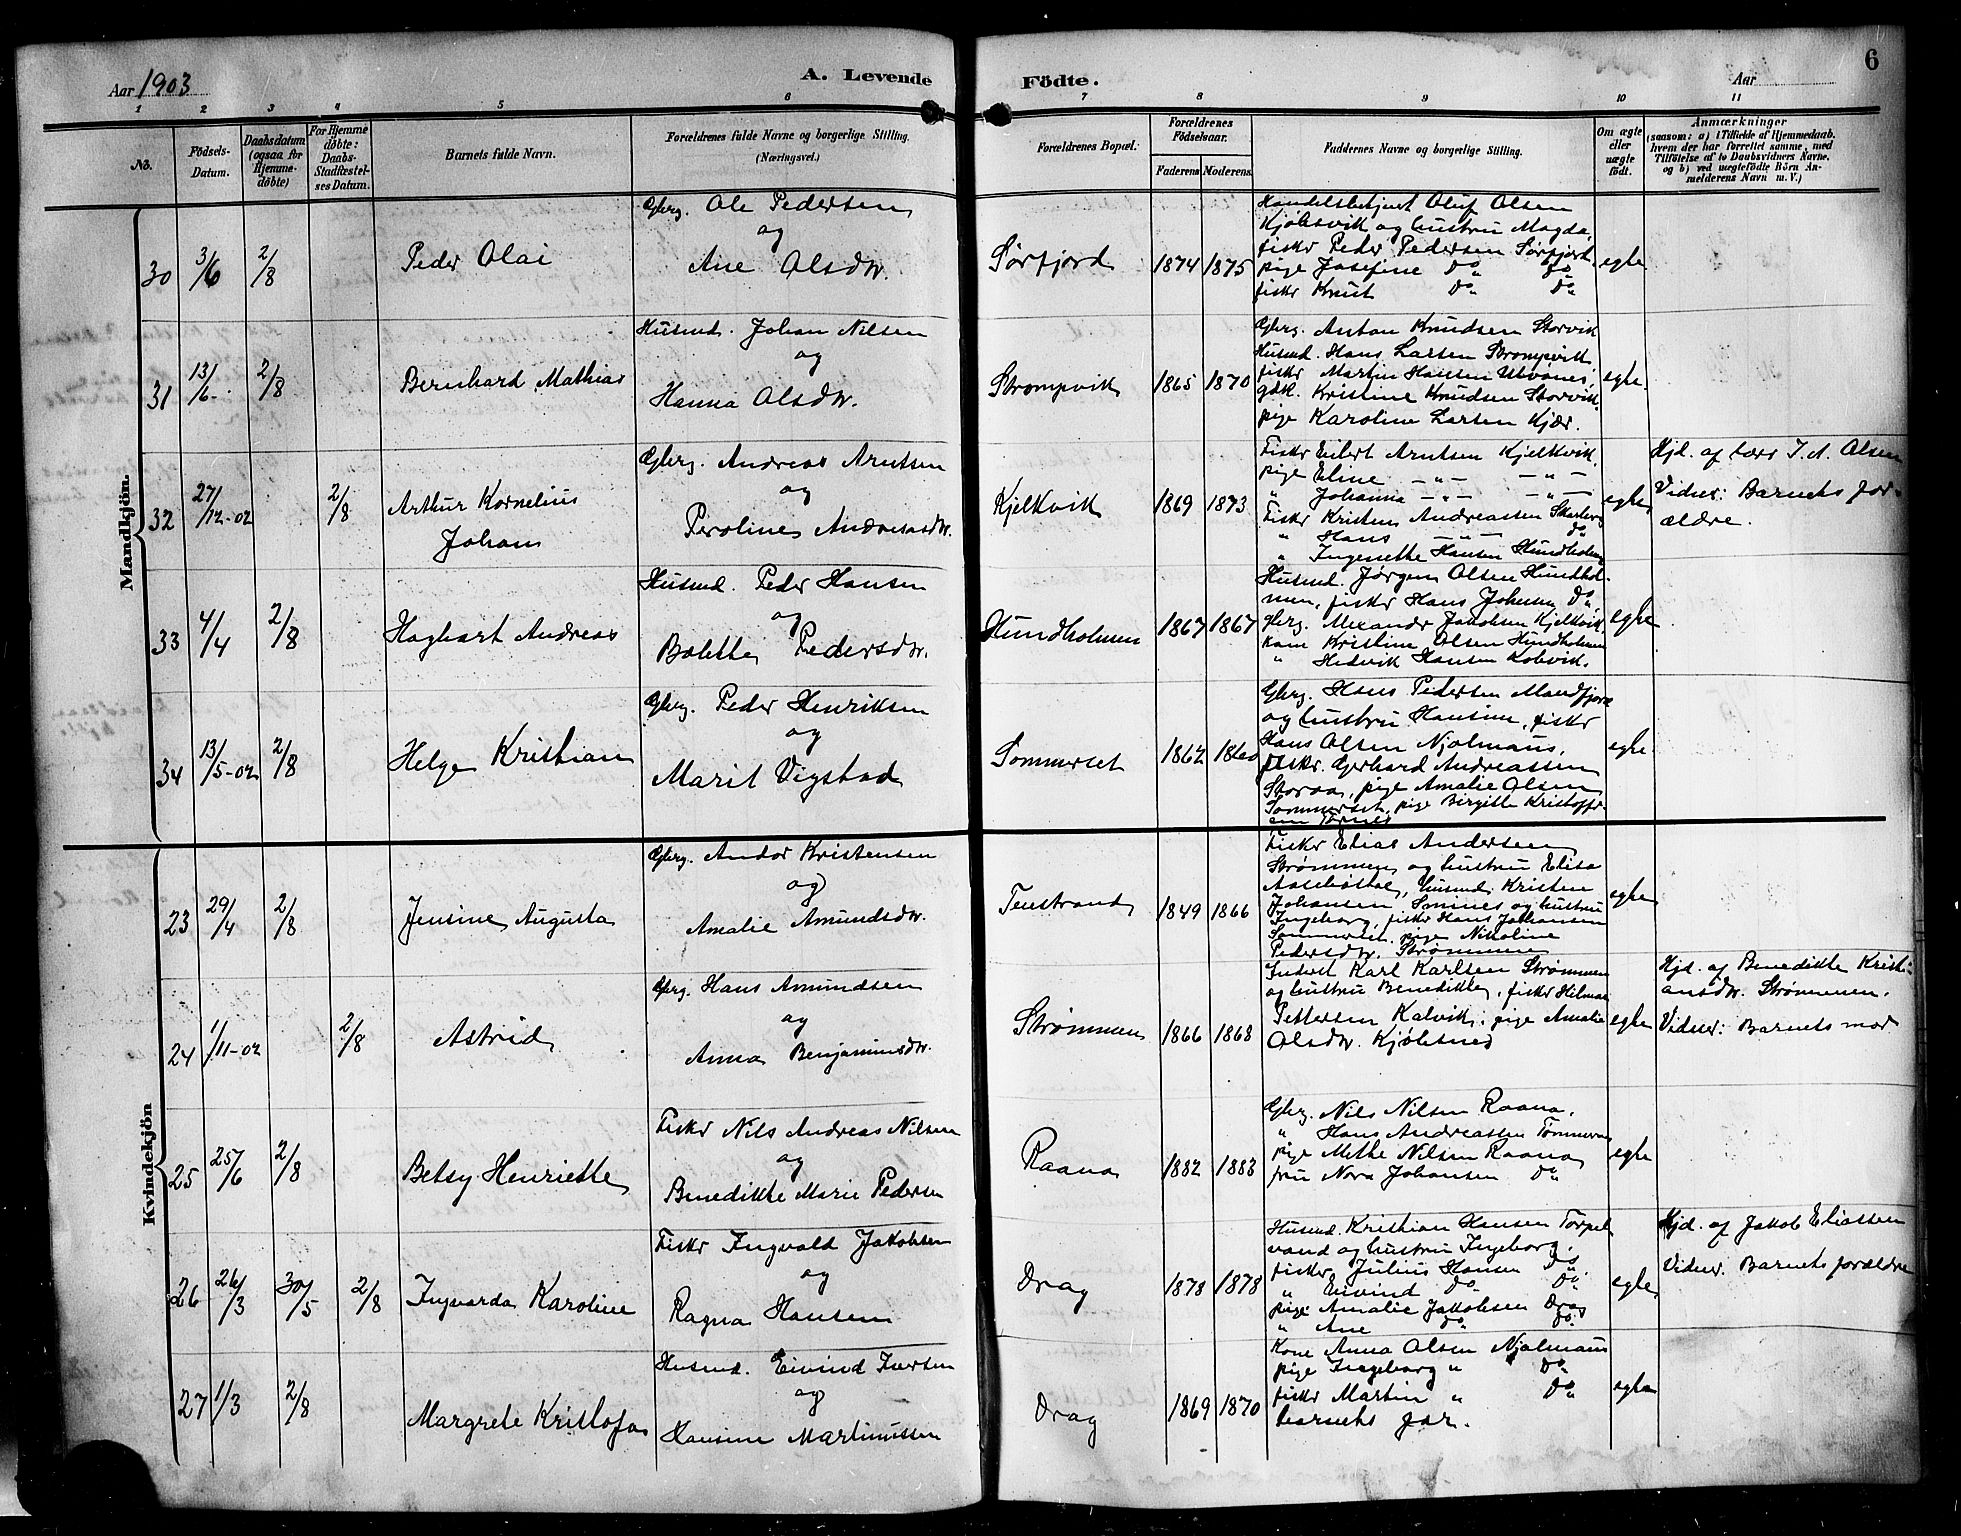 Aar 1903
A. Levende Födte.
Aar
6
1 2 3 4 5 6 7 8 9 10 11
No.
Födsels-Datum.
Daabsdatum (ogsaa for Hjemmedøbte)
For Hjemmedøbte: Daabs-Stadfæstelses Datum.
Barnets fulde Navn.
Forældrenes fulde Navne og borgerlige Stilling. (Næringsvei.)
Forældrenes Bopæl.
Forældrenes Födselsaar.
Faderens Moderens
Faddernes Navne og borgerlige Stilling.
Om ægte eller uægte födt.
Anmærkninger
(saasom: a) i Tilfælde af Hjemmedaab, hvem der har forrettet samme, med Tilföielse af to Daabsvidners Navne, og b) ved uægtefödte Börn Anmelderens Navn m. V.)
Mandkjön.
30 3/6 2/8
Peder Olai
Gbrg. Ole Pedersen
og
Ane Olsdtr.
Sørfjord 1874 1875
Handelsbetjent Oluf Olsen
Kjøbsvik og hustru Magda,
fiskr Peder Pedersen Sørfjord
pige Josefine Do Do
fiskr Knut Do Do
egte
31 13/6 2/8
Bernhard Mathias
Husmd. Johan Nilsen
og
Hanna Olsdtr.
Strompvik 1865 1870
Gbrg. Anton Knudsen Storvik
Husmd. Hans Larsen Strompvik
fiskr Martin Hansen
gdk. Kristine Knudsen Storvik
pige Karoline Larsen Kjær.
egte.
32 27/12-02 2/8
Arthur Kornelius
Johan
Gbrg. Andreas Arntsen
og
Peroline Andreasdtr.
Kjelkvik 1869 1873
Fiskr Eilert Arntsen Kjelkvik,
pige Eline - " - - " -
" Johanna - " - - " -
Fiskr Kristen Andreassen Skarberg
" Hans - " - Do
" Ingenette Hansen Hundholmen
egte,
Hjd. af lærer J. A. Olsen
Vidner: Barnets for-
ældre.
33 4/4 2/8
Hagbart Andreas
Husmd. Peder Hansen
og
Bolette Pedersdtr.
Hundholmen 1867 1867
Husmd. Jørgen Olsen Hundhol-
men, fiskr Hans Johnsen Do,
Gbrg. Alexander Jakobsen Kjelkvik,
kone Kristine Olsen Hundholmen
" Hedvik Hansen Kobvik.
egte
34 13/5-02 2/8
Helge Kristian
Gbrg. Peder Henriksen
og
Marit Vigstad
Sommerset 1862 1860
Gbrg. Hans Pedersen Mandfjord
og hustru Hansine, fiskr
Hans Olsen Njalmaus,
fiskr. Gerhard Andreassen
Storaa, pige Amalie Olsen
Sommerset, pige Birgitte Kristoffer-
sen Tørnes
egte
Kvindekjön
23 29/4 2/8
Jensine Augusta
Gbrg. Andor Kristensen
og
Amalie Amundsdtr.
Tenstrand 1849 1866
Fiskr Elias Andersen
Strømmen og hustru Elisa
husmd. Kristen
Johansen og hustru
Ingeborg, fiskr Hans Johansen
Sommerset, pige Nikoline
Pedersdtr. Strømmen
egte
24 1/11-02 2/8
Astrid
Gbrg. Hans Amundsen
og
Anna Benjaminsdtr.
Strømmen 1866 1868
Inderst Karl Karlsen Strømmen
og hustru Benedikte, fiskr Hilmar
Pettersen Kalvik, pige Amalie
Olsdtr. Kjøbsnes
egte
Hjd. af Benedikte Kristi-
ansdtr. Strømmen.
Vidner: Barnets mor
25 25/6 2/8
Betsy Henriette
Fiskr Nils Andreas Nilsen
og
Benedikte Marie Pedersen
Raana 1882 1883
Gbrg. Nils Nilsen Raana.
" Hans Andreassen Tømmernes
pige Methe Nilsen Raana
fru Nora Johansen Do
egte
26 26/3 30/5 2/8
Ingvarda Karoline
Fiskr Ingvald Jakobsen
og
Ragna Hansen
Drag 1878 1878
Husmd. Kristian Hansen Torpel
vand og hustru Ingeborg.
fiskr Julius Hansen Do
" Eivind Do Do
pige Amalie Jakobsen Drag
" Ane Do Do
egte
Hjd. af Jakob Eliassen
Vidner: Barnets forældre
27 1/3 2/8
Margrete Kristofa
Husmd. Eivind Iversen
og
Hansine Martinussen
Drag 1869 1870
Kone Anna Olsen Njalmaus
pige Ingeborg " Do
fiskr Martin " Do
barnets far.
egte